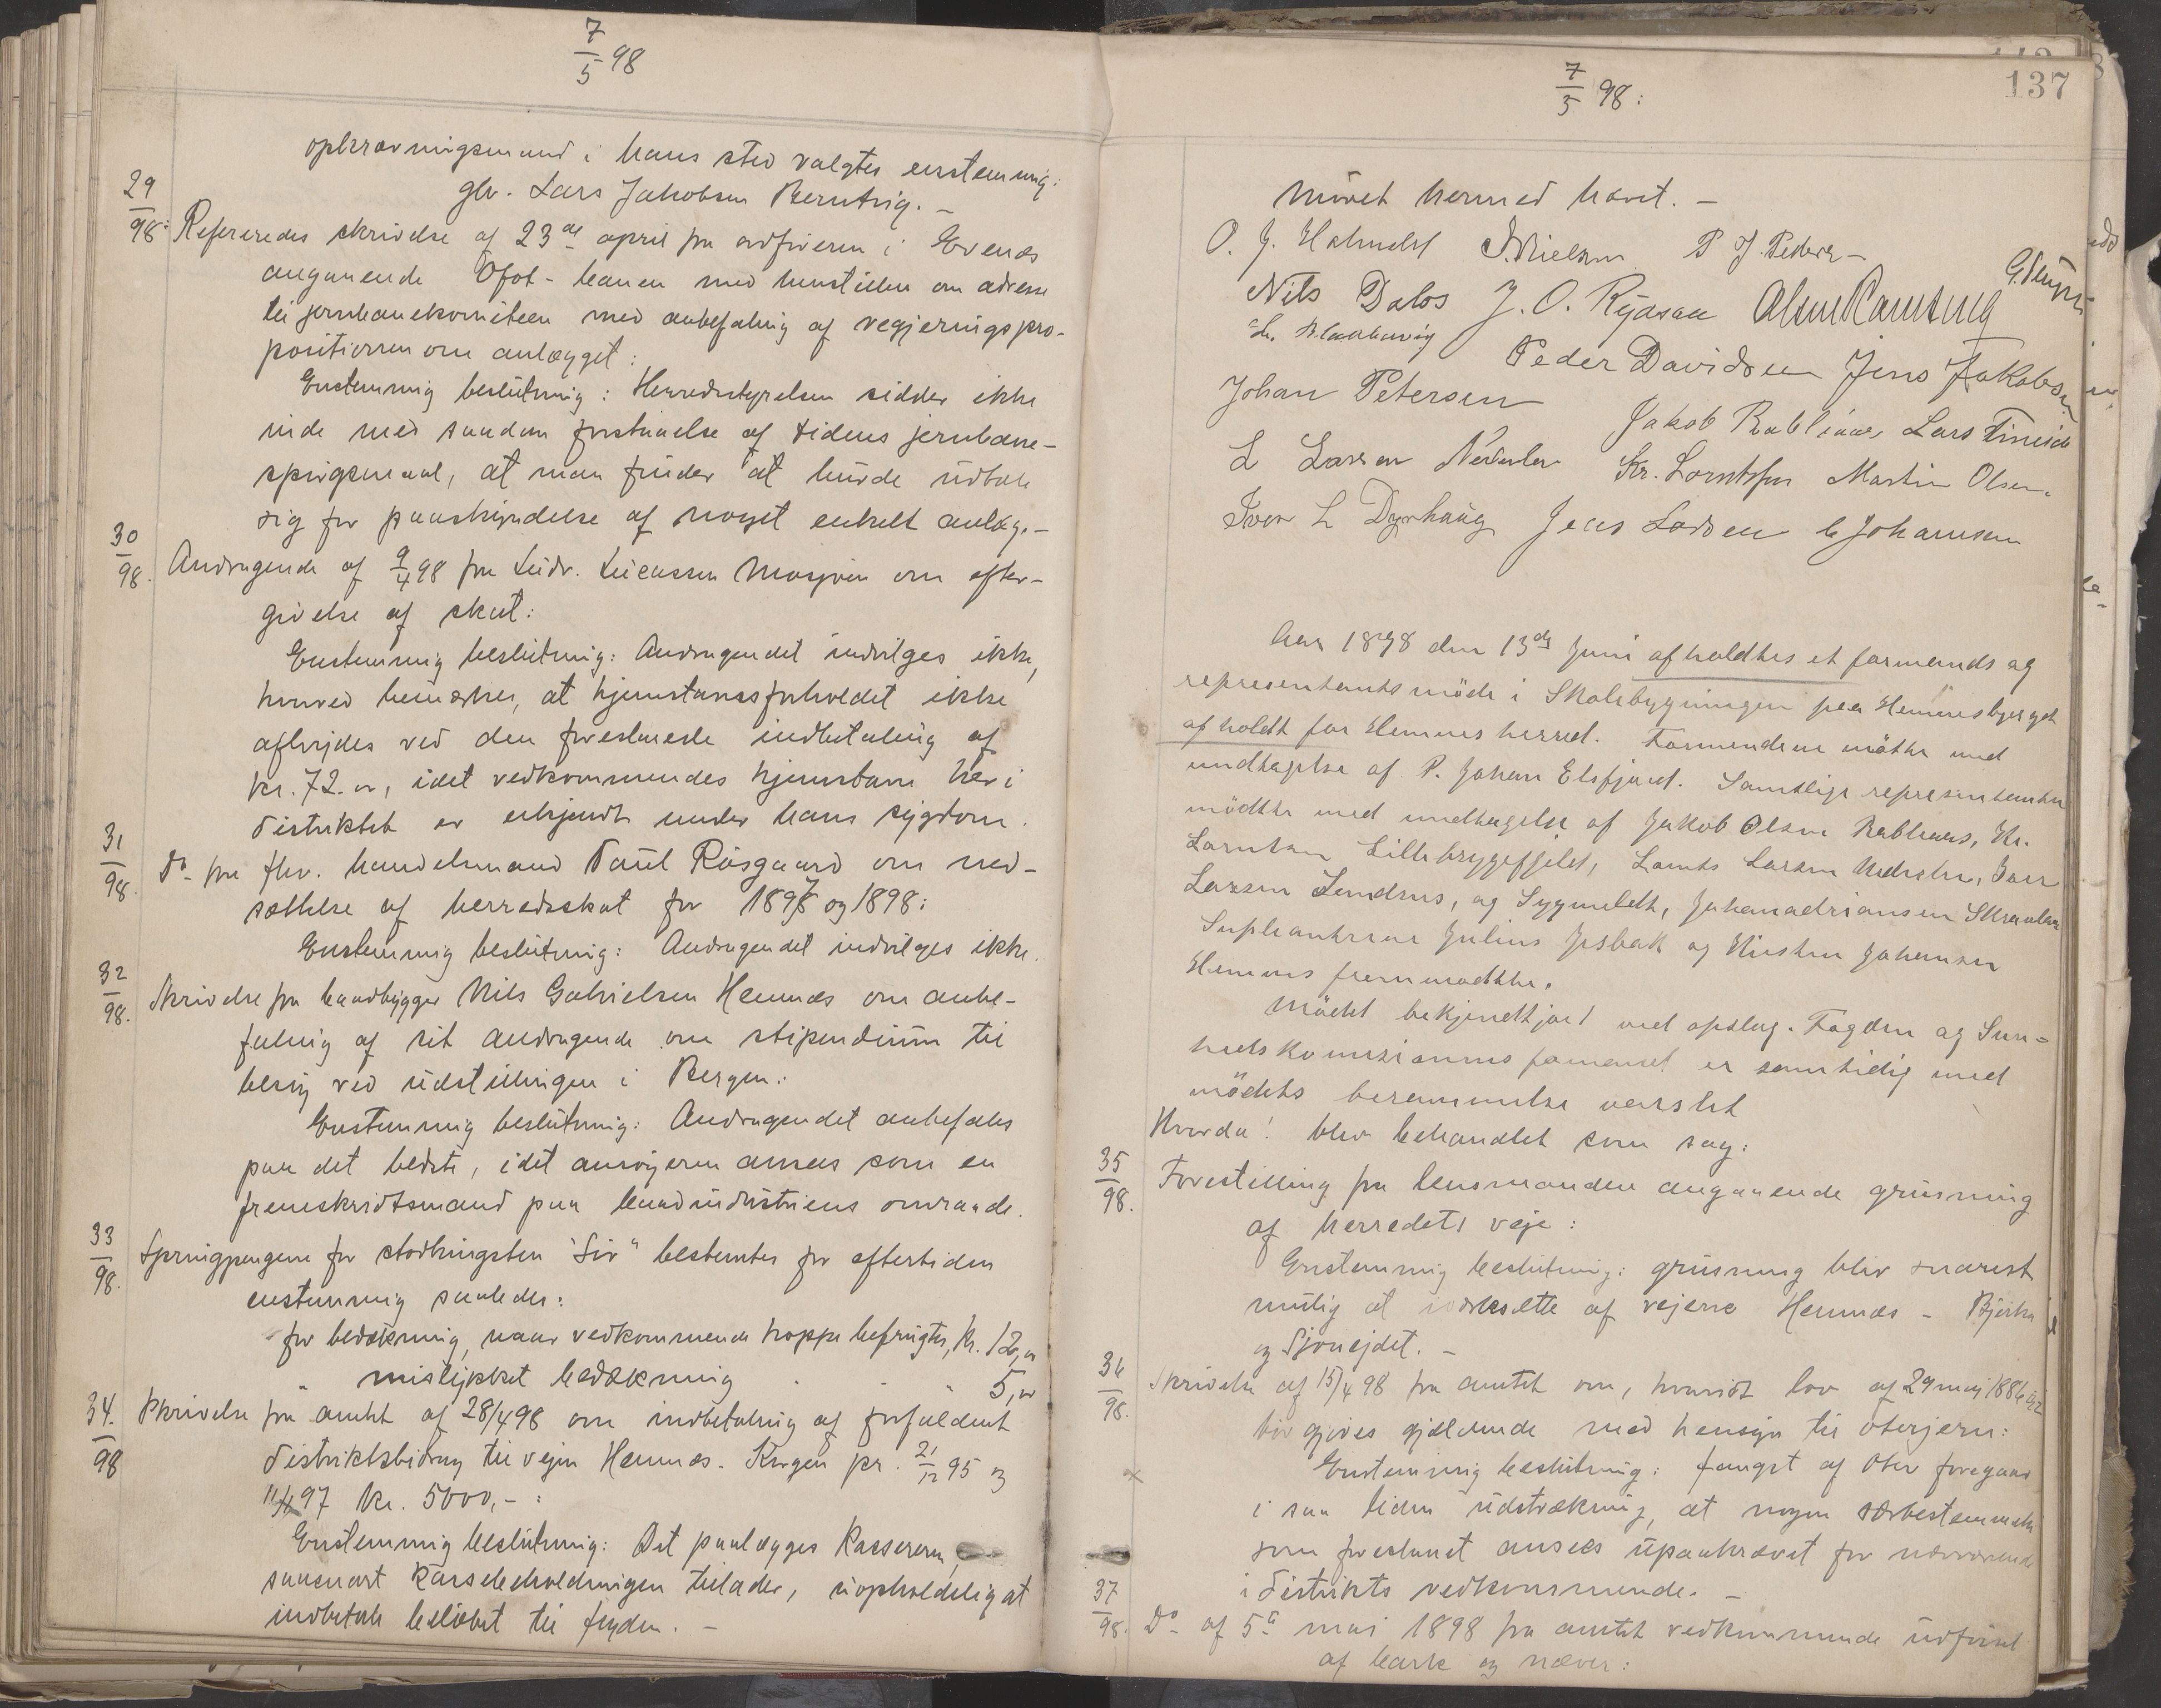 7/5 98
opkrævningsmand i hans sted valgtes enstemmig:
gbr. Lars Jakobsen Berntvig. –
29/98: Refereredes skrivelse af 23de april fra ordføreren i Evenæs
angaaende Ofot-banen med henstillen om adresse
til jernbanekomiteen med anbefaling af regjeringspro-
positionen om anlægget:
Enstemmig beslutning: Herredsstyrelsen sidder ikke
inde med saadan forstaaelse af tidens jernbane-
spørgsmaal, at man finder at burde udtale
sig for paaskyndelse af noget enkelt anlæg. –
30/98. Andragende af 9/4 98 fra Ludv. Lucassen Mosjøen om efter-
givelse af skat:
Enstemmig beslutning: Andragendet indvilges ikke,
hvorved bemærkes, at hjemstavnsforholdet ikke
afbrydes ved den foreslaaede indbetaling af
kr. 72.00, idet vedkommendes hjemstavn her i
distriktet er erkjendt under hans sygdom.
31/98. Do fra fhv. handelsmand Paul Røsgaard om ned-
sættelse af herredsskat for 1897 og 1898:
Enstemmig beslutning: Andragendet indvilges ikke.
32/98. Skrivelse fra baadbygger Nils Gabrielsen Hemnæs om anbe-
faling af sit andragende om stipendium til
besøg ved udstillingen i Bergen:
Enstemmig beslutning: Andragendet anbefales
paa det bedste, idet ansøgeren ansees som en
fremskridtsmand paa baadindustriens omraade.
33/98. Springpengene for stodhingsten "Siv" bestemtes for eftertiden
enstemmig saaledes:
for bedækning, naar vedkommende hoppe befrugtes, kr. 12,00
mislykket bedækning " " " 5,00
34./98 Skrivelse fra amtet af 28/4 98 om indbetaling af forfaldent
distriktsbidrag til vejen Hemnæs - Korgen pr. 21/12 95 og
11/11 97 kr. 5000,- :
Enstemmig beslutning: Det paalægges kassereren,
saasnart kassebeholdningen tillader, uopholdelig at
indbetale beløbet til fogden. –
7/5 98:
137
Mødet hermed hævet. –
O. J. Nielsen P J. Peders–
Nils Dalos J. O. Rydsaa
Peder Davidsen Jens Jakobsen
Johan Petersen Jakob Lars
L Larsen Kr. Lorntsen Martin Olsen.
Iver L Dyrhaug Jens Larsen Johansen
Aar 1898 den 13de Juni afholdtes et formands og
representantsmöde i Skolebygningen paa Hemnesbjerget
afholdt for Hemnes herred. Formendene mötte med
undtagelse af P. Johan Elsfjord. Samtlige representanter
mödtte med undtagelse af Jakob Olsen Kr.
Larsen og Sygmeldt,
Supleanterne Julius og Johansen
Hemnes fremmödtte.
Mödet bekjendtgjort ved opslag. Fogden og Sun-
hedskomisionens formand er samtidig med
mödets berammelse varslet
Hvorda! blev behandlet som sag:
35/98. Forestilling fra lensmanden angaaende grusning
af herredets veje:
Enstemmig beslutning: grusning blir snarest
mulig at iværksætte af vejene Hemnæs - Bjerka
og Sjonejdet. –
36/98. Skrivelse af 15/4 98 fra amtet om, hvorvidt lov af 29 maj 1886
bør gjøres gjældende med hensyn til oterjern:
Enstemmig beslutning: fangst af Oter foregaar
i saa liden udstrækning, at nogen særbestemmelse
som foreslaaet ansees upaakrævet for nærværende
i distrikts vedkommende. –
37/98. Do af 5te mai 1898 fra amtet vedkommende udførsel
af bark og næver: